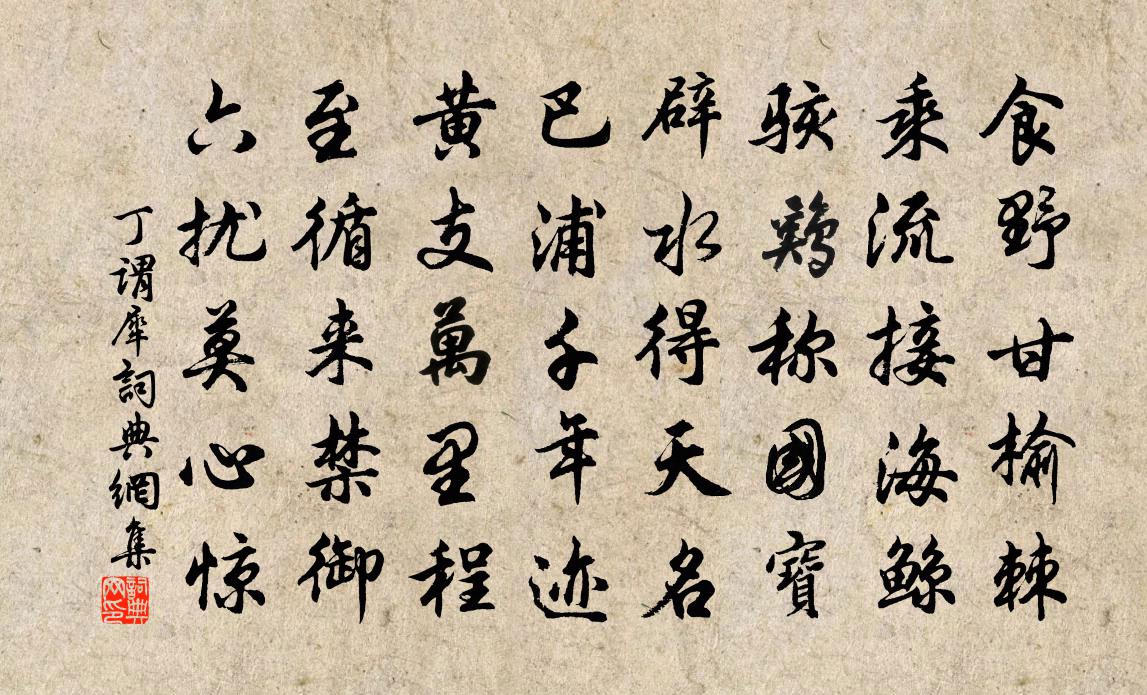 食野甘榆棘
乘流接海鲸
骇鷄称國寶
辟水得天名
巴浦千年迹
黄支萬里程
至循来禁御
六扰莫心惊
丁谓犀詞典網集
詞典网印